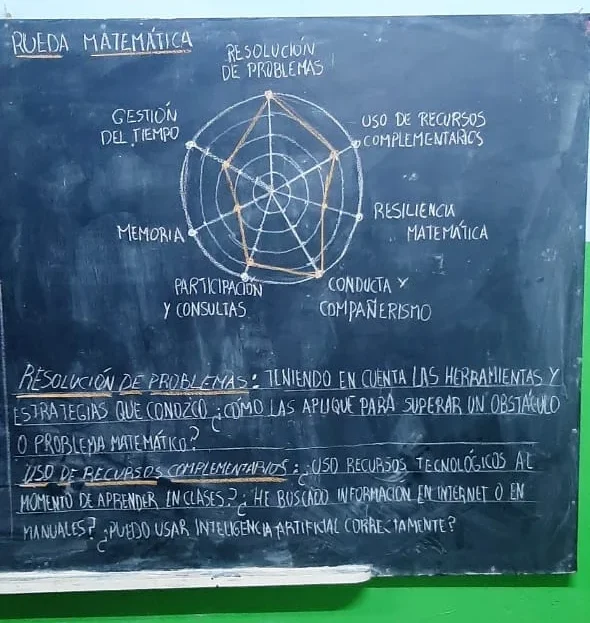 RUEDA MATEMÁTICA
RESOLUCIÓN
DE PROBLEMAS
GESTIÓN
DEL TIEMPO
USO DE RECURSOS
COMPLEMENTARIOS
MEMORIA
RESILIENCIA
MATEMÁTICA
PARTICIPACIÓN
Y CONSULTAS
CONDUCTA Y
COMPAÑERISMO
RESOLUCIÓN DE PROBLEMAS: TENIENDO EN CUENTA LAS HERRAMIENTAS Y
ESTRATEGIAS QUE CONOZCO ¿CÓMO LAS APLIQUE PARA SUPERAR UN OBSTÁCULO
O PROBLEMA MATEMÁTICO?
USO DE RECURSOS COMPLEMENTARIOS: ¿USO RECURSOS TECNOLÓGICOS AL
MOMENTO DE APRENDER EN CLASES? ¿HE BUSCADO INFORMACION EN INTERNET O EN
MANUALES? ¿PUEDO USAR INTELIGENCIA ARTIFICIAL CORRECTAMENTE?